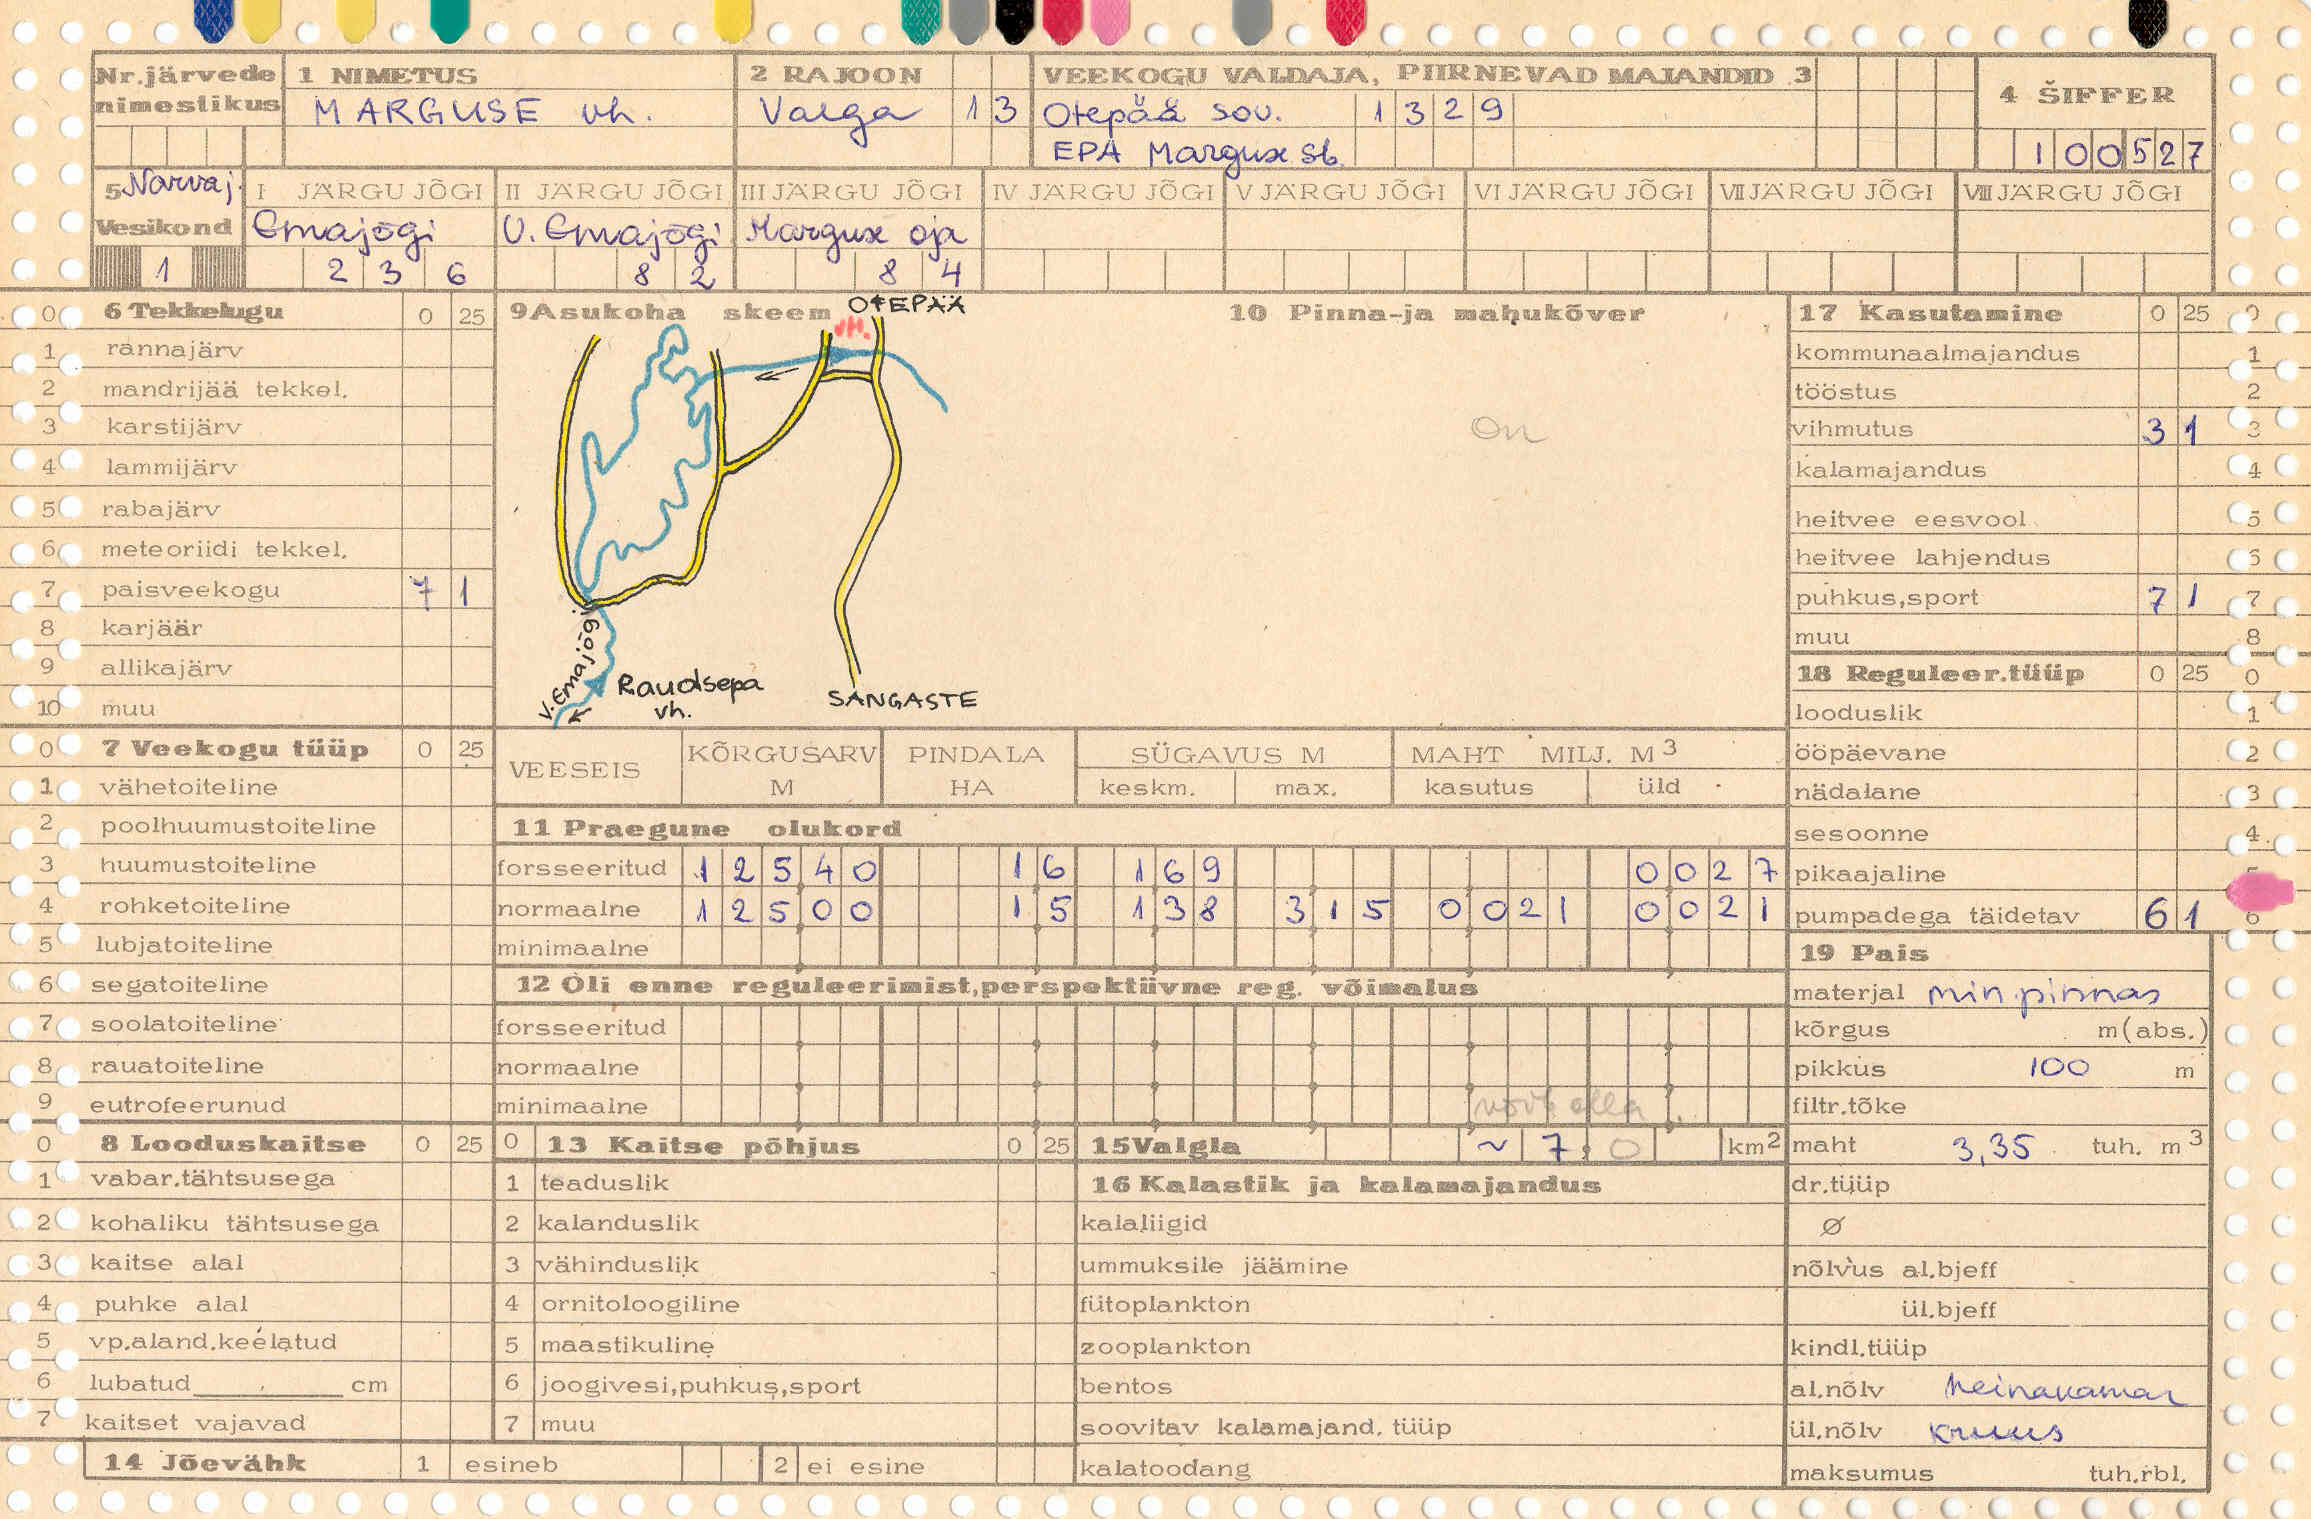 Nr.järvede nimestikus
1 NIMETUS
MARGUSE vh.
2 RAJOON
Valga 13
VEEKOGU VALDAJA, PIIRNEVAD MAJANDID 3
Otepää sov. 1329
EPA Marguse sb.
4 ŠIFFER
100527
5 Narvaj.
Vesikond
1
I JÄRGU JÕGI
Emajõgi
236
II JÄRGU JÕGI
V. Emajõgi
82
III JÄRGU JÕGI
Marguse oja
84
IV JÄRGU JÕGI
V JÄRGU JÕGI
VI JÄRGU JÕGI
VII JÄRGU JÕGI
VIII JÄRGU JÕGI
0 6 Tekkelugu 0 25
1 rannajärv
2 mandrijää tekkel.
3 karstijärv
4 lammijärv
5 rabajärv
6 meteoriidi tekkel.
7 paisveekogu 7 1
8 karjäär
9 allikajärv
10 muu
0 7 Veekogu tüüp 0 25
1 vähetoiteline
2 poolhuumustoiteline
3 huumustoiteline
4 rohketoiteline
5 lubjatoiteline
6 segatoiteline
7 soolatoiteline
8 rauatoiteline
9 eutrofeerunud
0 8 Looduskaitse 0 25
1 vabar.tähtsusega
2 kohaliku tähtsusega
3 kaitse alal
4 puhke alal
5 vp.aland.keelatud
6 lubatud cm
7 kaitset vajavad
14 Jõevähk 1 esineb 2 ei esine
9 Asukoha skeem
OTEPÄÄ
vh.
V. Emajõgi
Raudsepa
vh.
SANGASTE
10 Pinna-ja mahukõver
On
VEESEIS
KÕRGUSARV M
PINDALA HA
SÜGAVUS M
keskm. max.
MAHT MILJ. M3
kasutus üld
11 Praegune olukord
forsseeritud 12540 16 169 0027
normaalne 12500 15 138 315 0021 0021
minimaalne
12 Oli enne reguleerimist,perspektiivne reg. võimalus
forsseeritud
normaalne
minimaalne
võib olla
0 13 Kaitse põhjus 0 25
1 teaduslik
2 kalanduslik
3 vähinduslik
4 ornitoloogiline
5 maastikuline
6 joogivesi,puhkus,sport
7 muu
15 Valgla ~ 7,0 km2
16 Kalastik ja kalamajandus
kalaliigid
ummuksile jäämine
fütoplankton
zooplankton
bentos
soovitav kalamajand. tüüp
kalatoodang
17 Kasutamine 0 25 0
kommunaalmajandus 1
tööstus 2
vihmutus 3 1 3
kalamajandus 4
heitvee eesvool 5
heitvee lahjendus 6
puhkus,sport 7 1 7
muu 8
18 Reguleer.tüüp 0 25 0
looduslik 1
ööpäevane 2
nädalane 3
sesoonne 4
pikaajaline 5
pumpadega täidetav 6 1 6
19 Pais
materjal min.pinnas
kõrgus m(abs.)
pikkus 100 m
filtr.tõke
maht 3,35 tuh. m3
dr.tüüp
Ø
nõlvus al.bjeff
ül.bjeff
kindl.tüüp
al.nõlv heinakamar
ül.nõlv kruus
maksumus tuh.rbl.